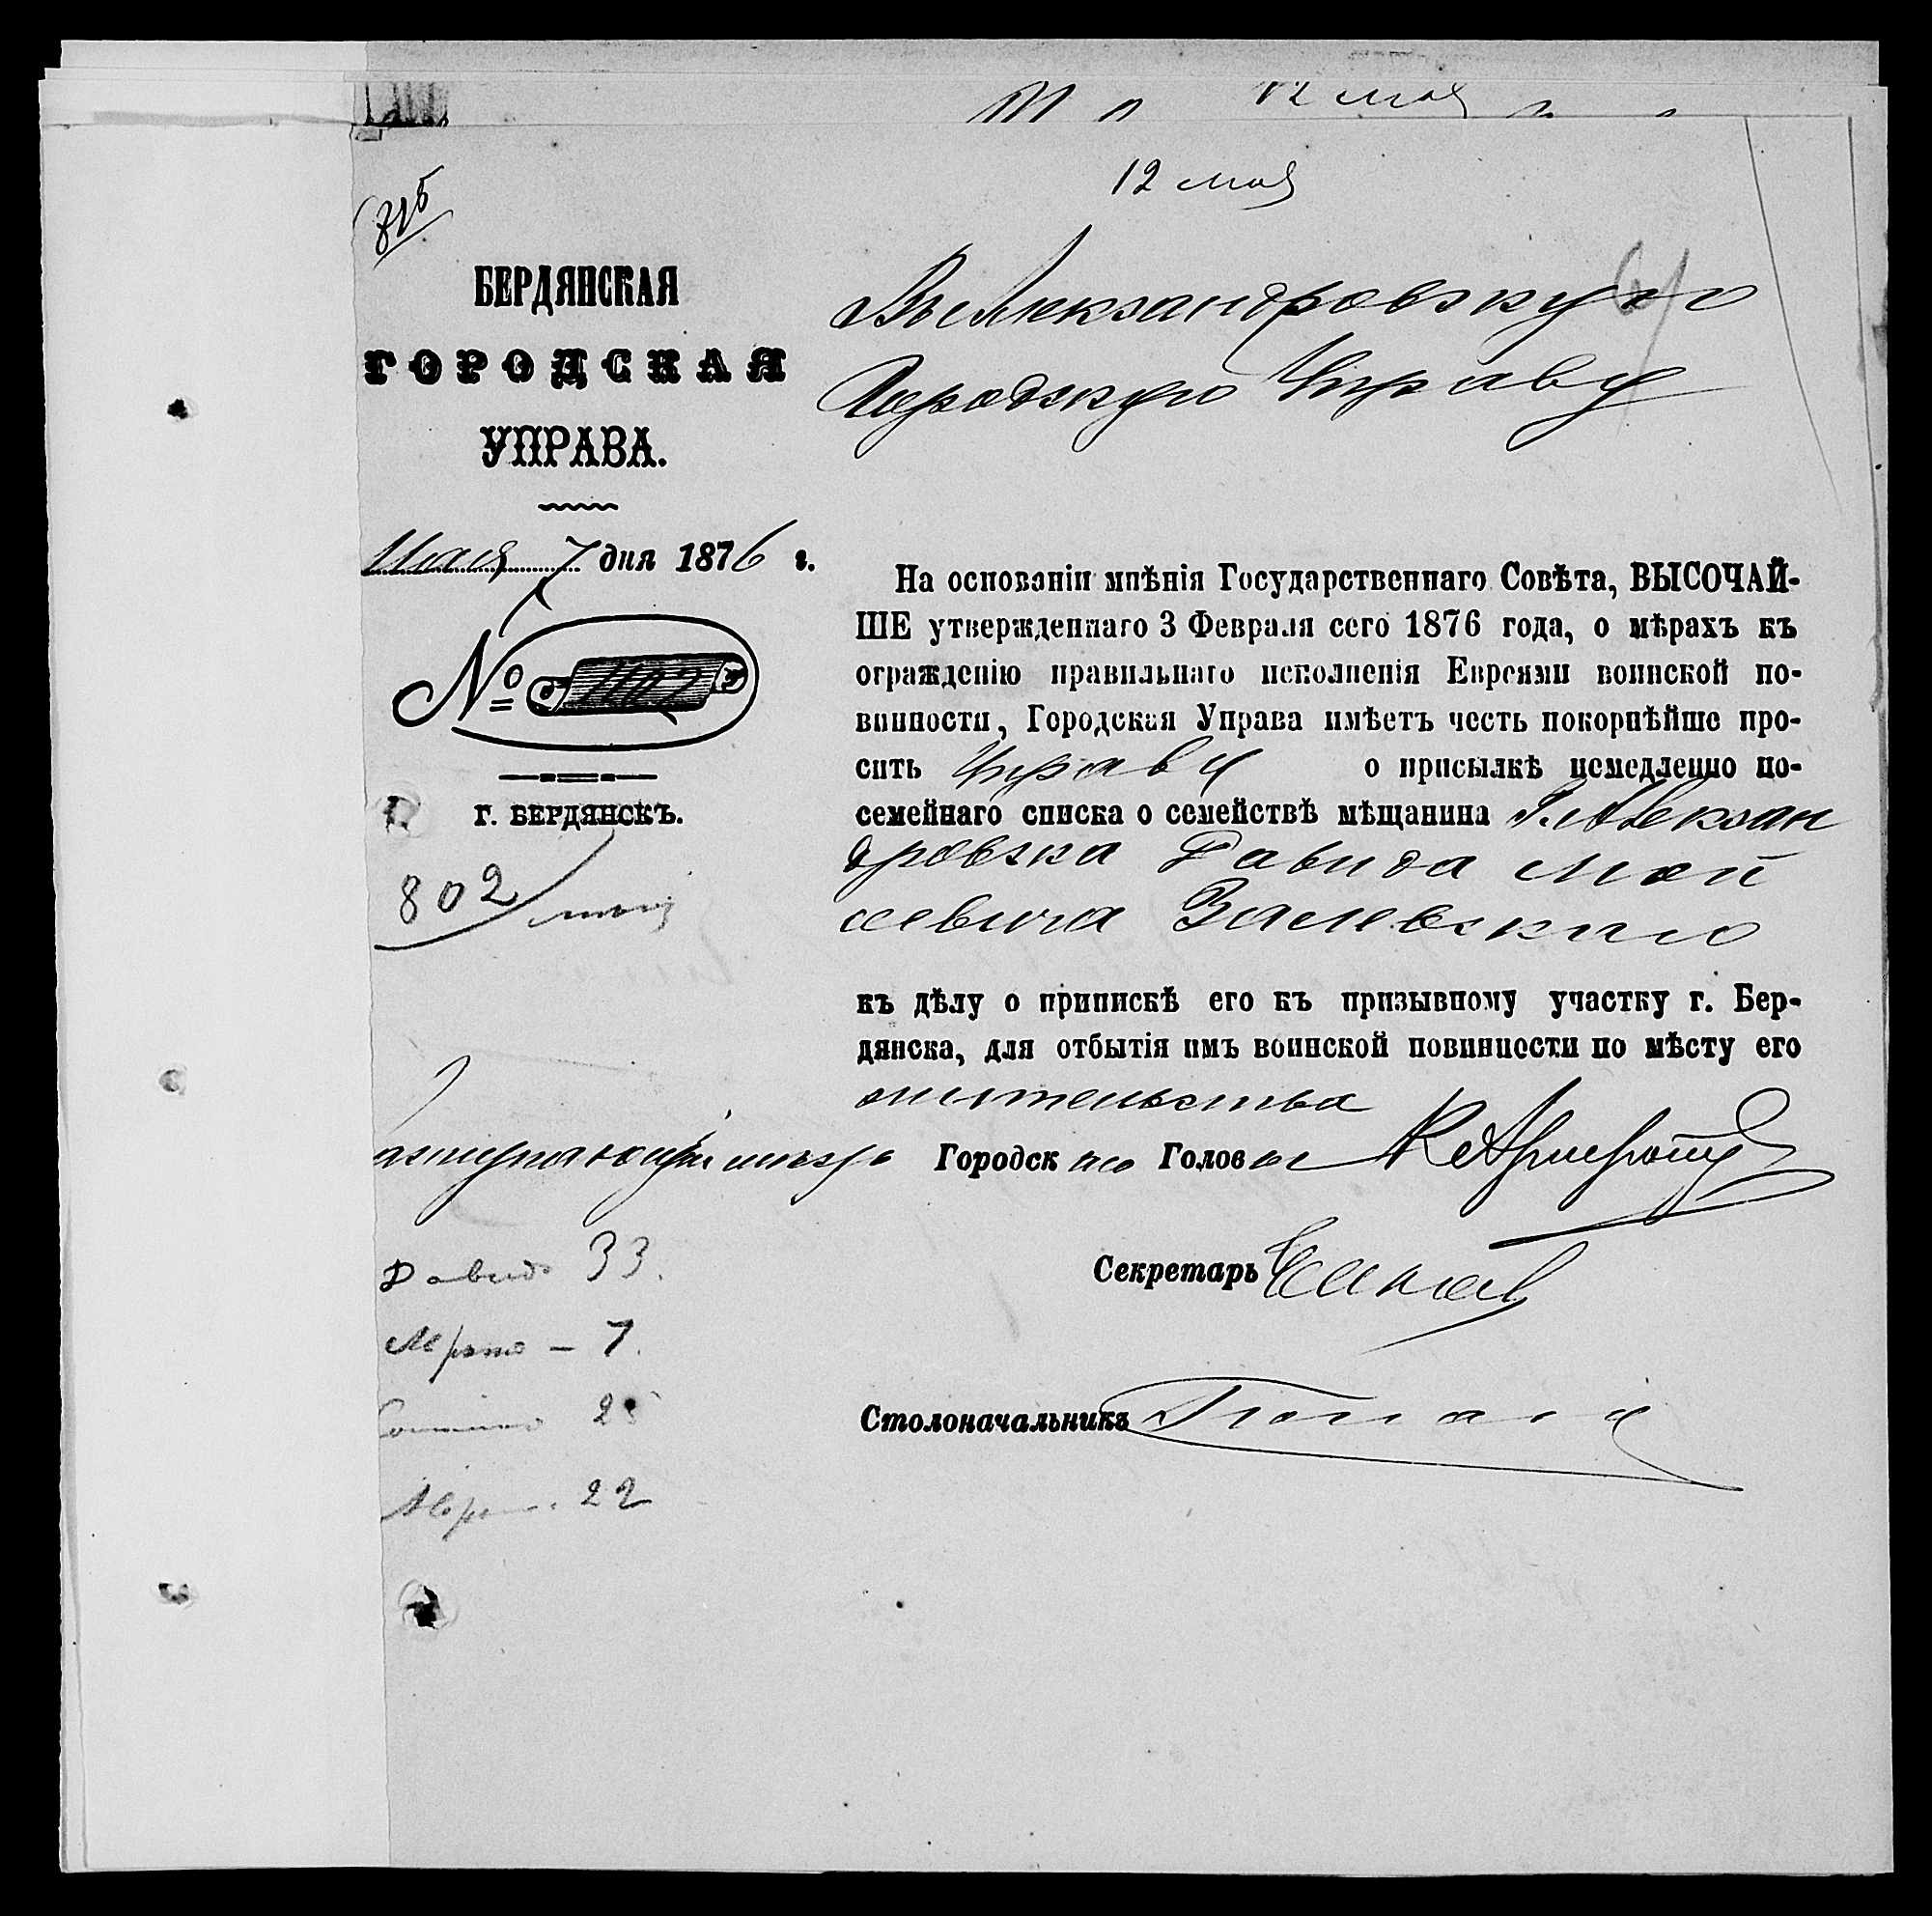 12 мая
12 мая
БЕРДЯНСКАЯ
ГОРОДСКАЯ
УПРАВА.
Мая 7 дня 1876 г.
№ 1102
Г. БЕРДЯНСКЪ.
802
Въ Александровскую
Городскую Управу
На основаніи мнѣнія Государственнаго Совѣта, ВЫСОЧАЙ-
ШЕ утвержденнаго 3 Февраля сего 1876 года, о мѣрахъ къ
огражденію правильнаго исполненія Евреями воинской по-
винности, Городская Управа имѣетъ честь покорнѣйше про-
сить Управу о присылкѣ немедленно по-
семейнаго списка о семействѣ мѣщанина г. Алексан
дровска Давида Мой
сеевича Залевскаго
къ дѣлу о припискѣ его къ призывному участку г. Бер-
дянска, для отбытія имъ воинской повинности по мѣсту его
жительства
Городск аго Голов ы
Секретарь
Столоначальникъ
Давидъ 33.
– 7.
22